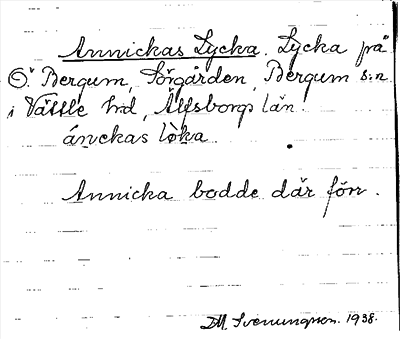 Annickas Lycka. Lycka på
Ö. Bergum, Sörgården, Bergum s:n
i Vättle hd, Älfsborgs län.
ánckas lò̀ka
Annicka bodde där förr.
D.M. Svenungsson. 1938.